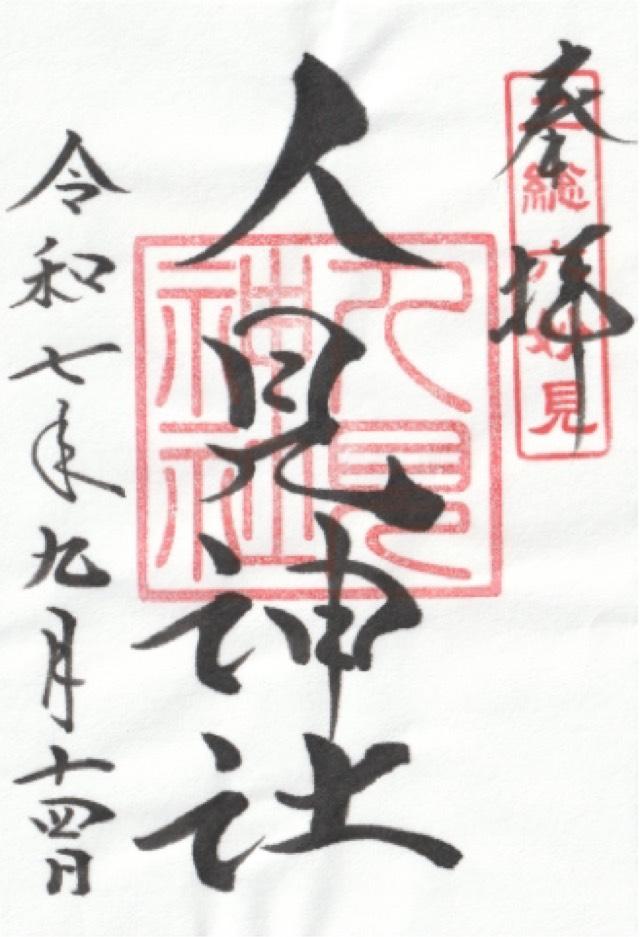 奉拝
総妙見
人見神社
人見
神社
令和七年九月十四日